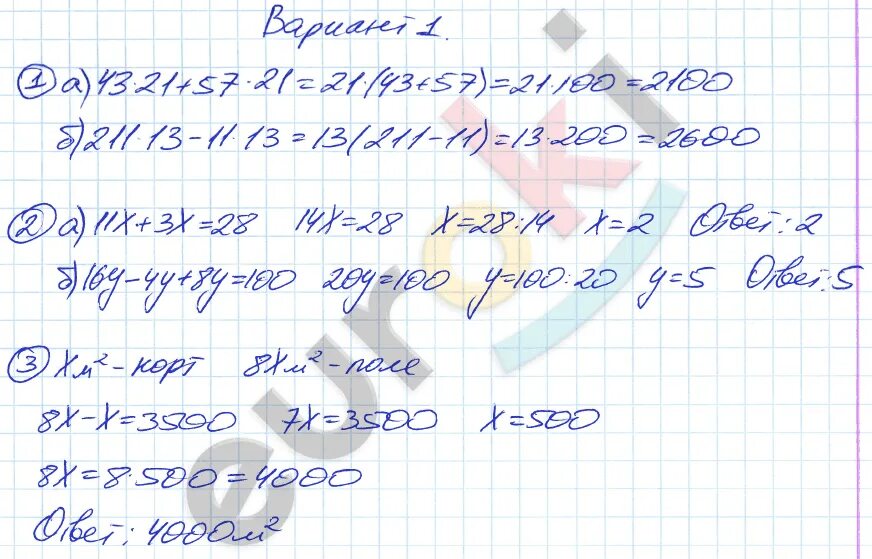 Вариант 1.
① а) 43·21+57·21=21·(43+57)=21·100=2100
б) 211·13-11·13=13(211-11)=13·200=2600
② а) 11x+3x=28 14x=28 x=28:14 x=2 Ответ: 2
б) 16y-4y+8y=100 20y=100 y=100:20 y=5 Ответ: 5
③ xм²-корт 8xм²-поле
8x-x=3500 7x=3500 x=500
8x=8·500=4000
Ответ: 4000м²
euroki